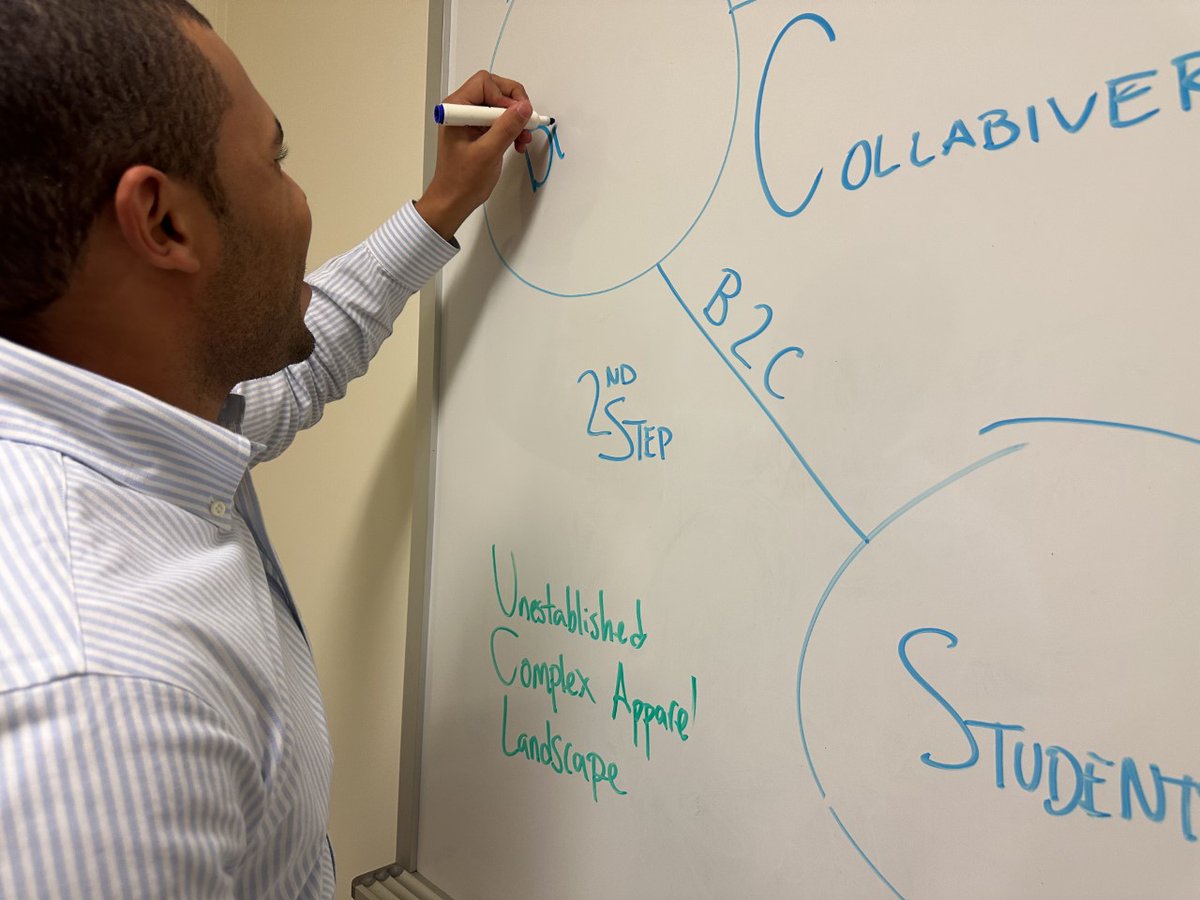 COLLABIVER
B2C
2ND
STEP
Unestablished
Complex Apparel
Landscape
STUDENT